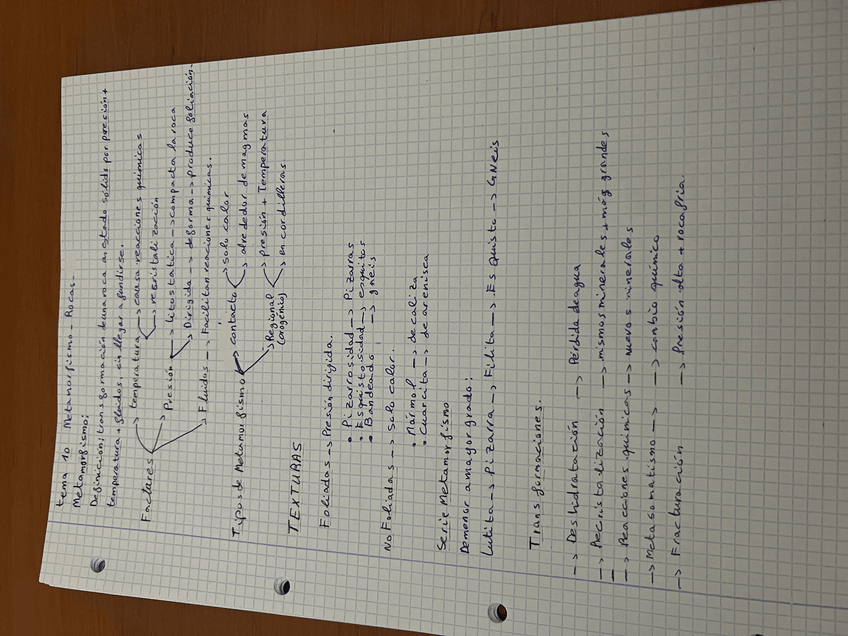 tema 10 Metamorfismo - Rocas -
Metamorfismo:
Definición: transformación de una roca en estado sólido por presión +
temperatura + fluidos, sin llegar a fundirse.
Factores → temperatura → causa reacciones químicas
→ recristalización
→ Presión → litostática → compacta la roca
→ Dirigida → deforma → produce foliación
→ Fluidos → Facilitan reaciones químicas.
Tipos de Metamorfismo → contacto → solo calor
→ alrededor de magmas
→ Regional → presión + Temperatura
(orogénico) → en cordilleras
TEXTURAS
Foliadas → Presión dirigida.
• Pizarrosidad → Pizarras
• Esquistosidad → esquitos
• Bandeado → gneis
No Foliadas → Solo calor.
• Mármol → de caliza
• Cuarcita → de arenisca
Serie Metamorfismo
De menor a mayor grado:
Lutita → Pizarra → Filita → Esquisto → GNeis
Transformaciones.
→ Deshidratación → Pérdida de agua
→ Recristalización → mismos minerales + más grandes
→ Reacciones químicas → nuevos minerales
→ Metasomatismo → cambio químico
→ Fracturación → Presión alta + roca fría.